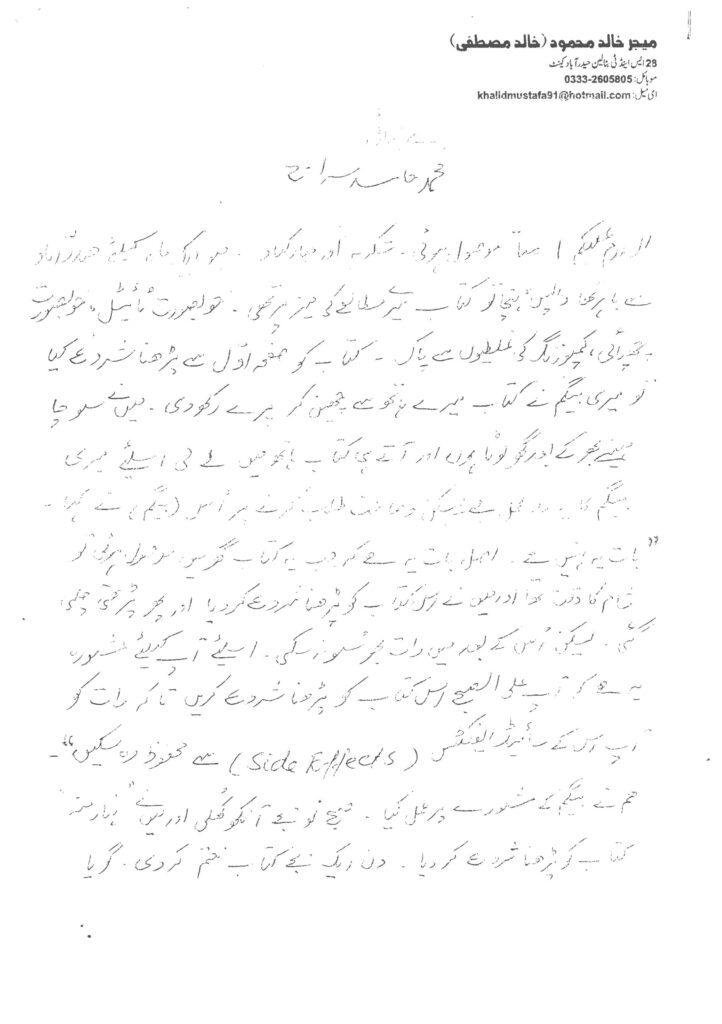 میجر خالد محمود (خالد مصطفی)
28 ایس اینڈ ٹی بٹالین حیدرآباد کینٹ
موبائل: 0333-2605805
ای میل: khalidmustafa91@hotmail.com
محمد حامد سراج
السلام علیکم! موصول ہوئی۔ شکریہ اور مبارکباد۔ میں ایک ماہ کیلئے حیدرآباد
سے باہر تھا واپس پہنچا تو کتاب میرے مطالعے کی میز پر تھی۔ خوبصورت ٹائیٹل، خوبصورت
چھپرائی، کمپوزنگ کی غلطیوں سے پاک۔ کتاب کو صفحہ اوّل سے پڑھنا شروع کیا
تو میری بیگم نے کتاب میرے ہاتھ سے چھین کر پرے رکھ دی۔ میں نے سوچا
مہینے بھر کے بعد گھر لوٹا ہوں اور آتے ہی کتاب ہاتھ میں لے لی اسلئے میری
بیگم کا یہ ردِ عمل ہے لیکن وضاحت طلب کرنے پر اُس (بیگم) نے کہا۔
"بات یہ نہیں ہے۔ اصل بات یہ ہے کہ جب یہ کتاب گھر میں موصول ہوئی تو
شام کا وقت تھا اور میں نے اس کتاب کو پڑھنا شروع کر دیا اور پھر پڑھتی چلی
گئی۔ لیکن اُس کے بعد میں رات بھر سو نہ سکی۔ اسلئے آپ کیلئے مشورہ
یہ ہے کہ آپ علی الصبح اس کتاب کو پڑھنا شروع کریں تاکہ رات کو
آپ اس کے سائیڈ ایفیکٹس (Side Effects) سے محفوظ رہ سکیں"۔
ہم نے بیگم کے مشورے پر عمل کیا۔ صبح نو بجے آنکھ کھلی اور میں نے نہار منہ
کتاب کو پڑھنا شروع کر دیا۔ دن ایک بجے کتاب ختم کر دی۔ گویا